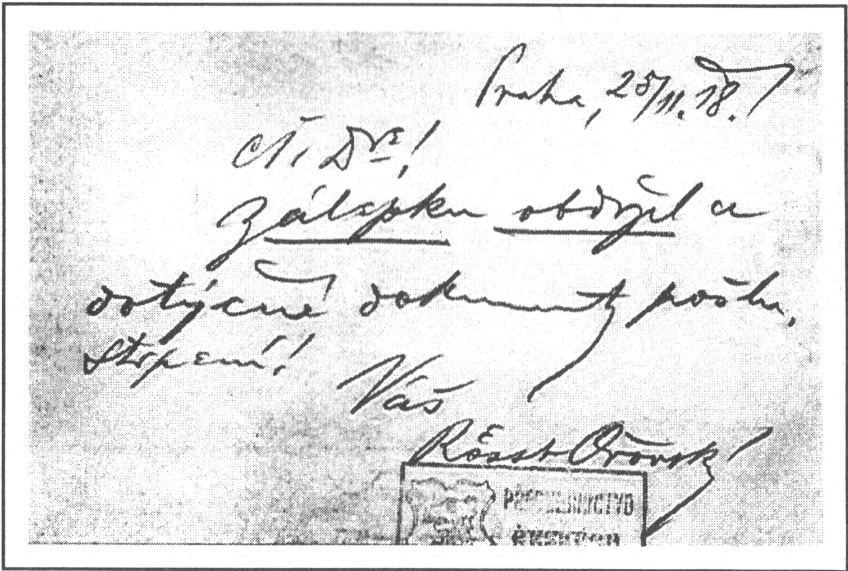 Praha, 25/11.18.
ct. Dre!
Zálepku obdržel a
dotyčné dokumenty pošlu.
Strpení!
Váš
Rössler Ořovský
PŘEDSEDNICTVO